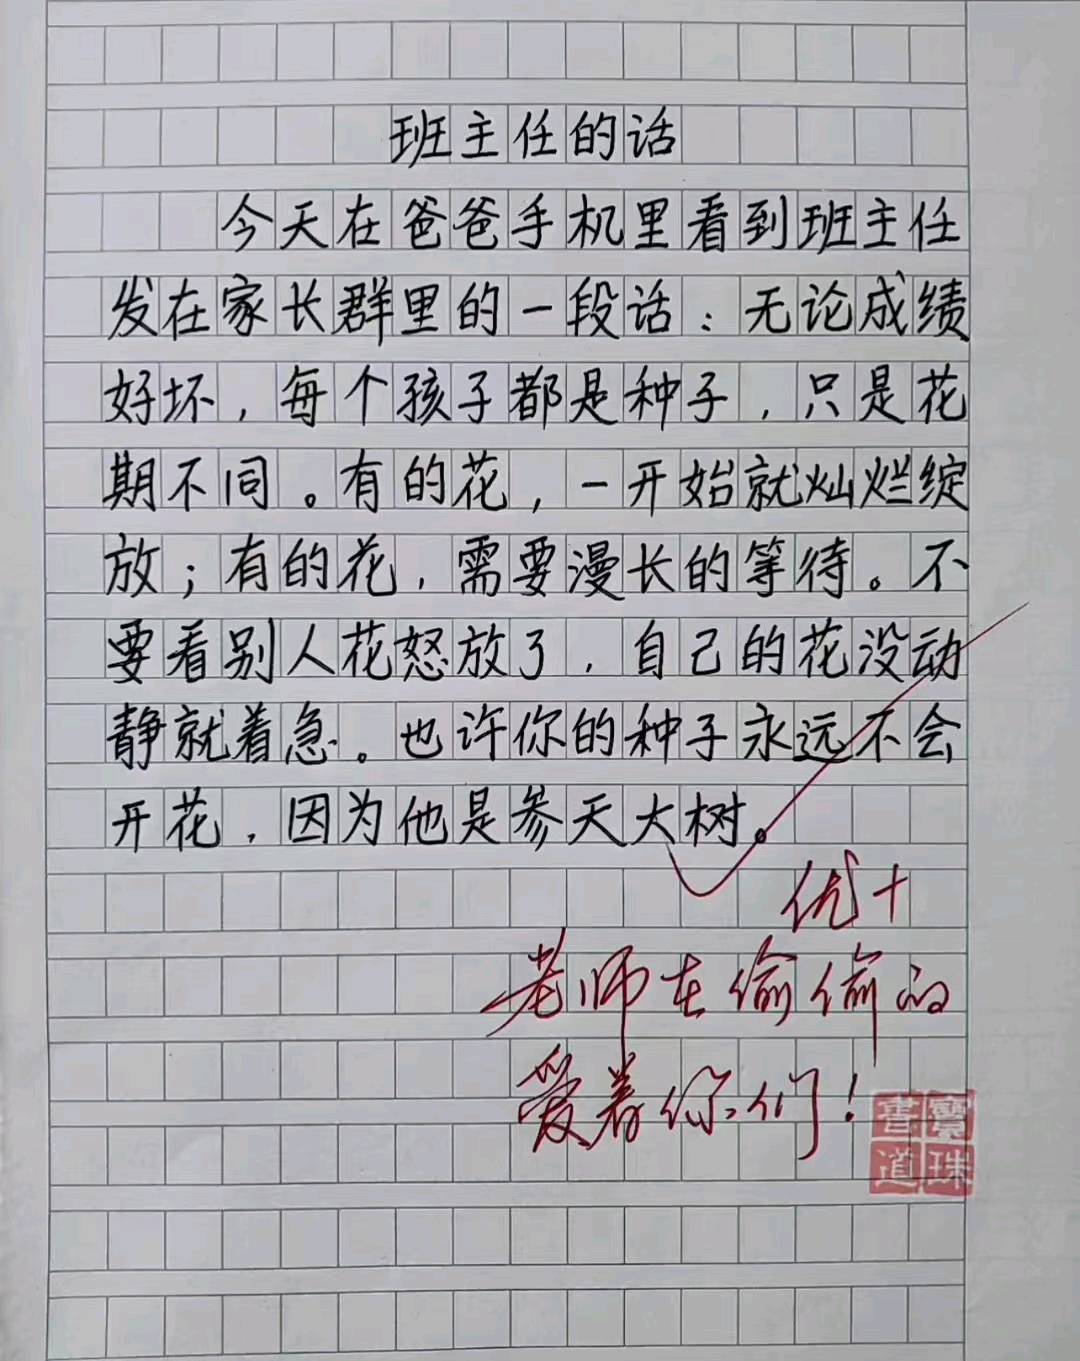 班主任的话
今天在爸爸手机里看到班主任
发在家长群里的一段话：无论成绩
好坏，每个孩子都是种子，只是花
期不同。有的花，一开始就灿烂绽
放；有的花，需要漫长的等待。不
要看别人花怒放了，自己的花没动
静就着急。也许你的种子永远不会
开花，因为他是参天大树。
优+
老师在偷偷的
爱着你们！
書寶
道珠